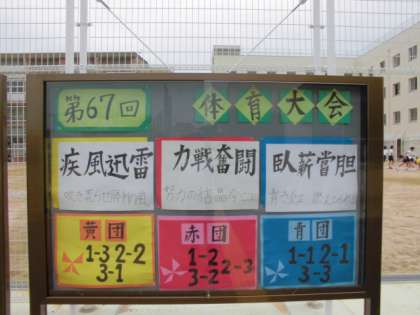 第67回
体育大会
疾風迅雷
力戦奮闘
臥薪嘗胆
黄団
1-3 2-2
3-1
赤団
1-2
3-2 2-3
青団
1-1 2-1
3-3